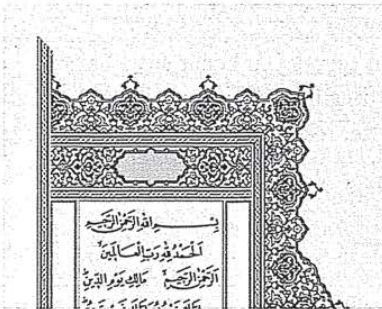 بِسْمِ اللهِ الرَّحْمٰنِ الرَّحِيمِ
اَلْحَمْدُ لِلّٰهِ رَبِّ الْعَالَمِينَ
اَلرَّحْمٰنِ الرَّحِيمِ مَالِكِ يَوْمِ الدِّينِ